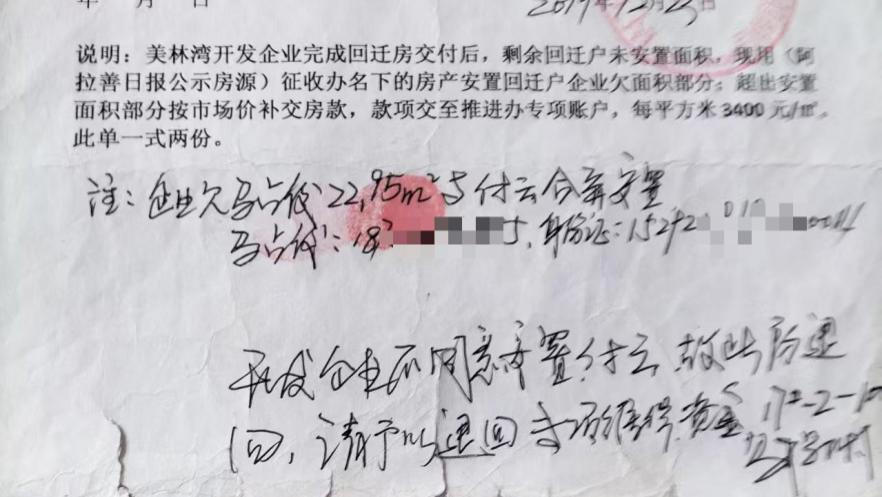 年 月 日
2019年12月23日
说明：美林湾开发企业完成回迁房交付后，剩余回迁户未安置面积，现用（阿
拉善日报公示房源）征收办名下的房产安置回迁户企业欠面积部分；超出安置
面积部分按市场价补交房款，款项交至推进办专项账户，每平方米3400元/㎡。
此单一式两份。
注：企业欠马占钱22.95m²与付云合并安置
马占钱：18 5，身份证：15292
开发企业不同意安置付云，故此房退
回，请予以退回专项维保资金